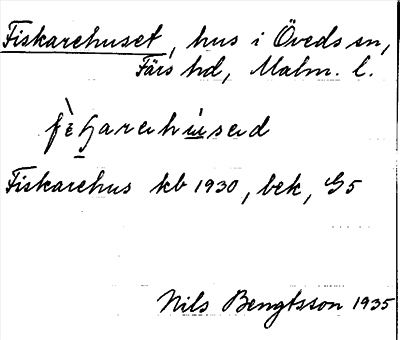 Fiskarehuset, hus i Öveds sn,
Färs hd, Malm. l.
Fiskarehus kb 1930, bek, G5
Nils Bengtsson 1935